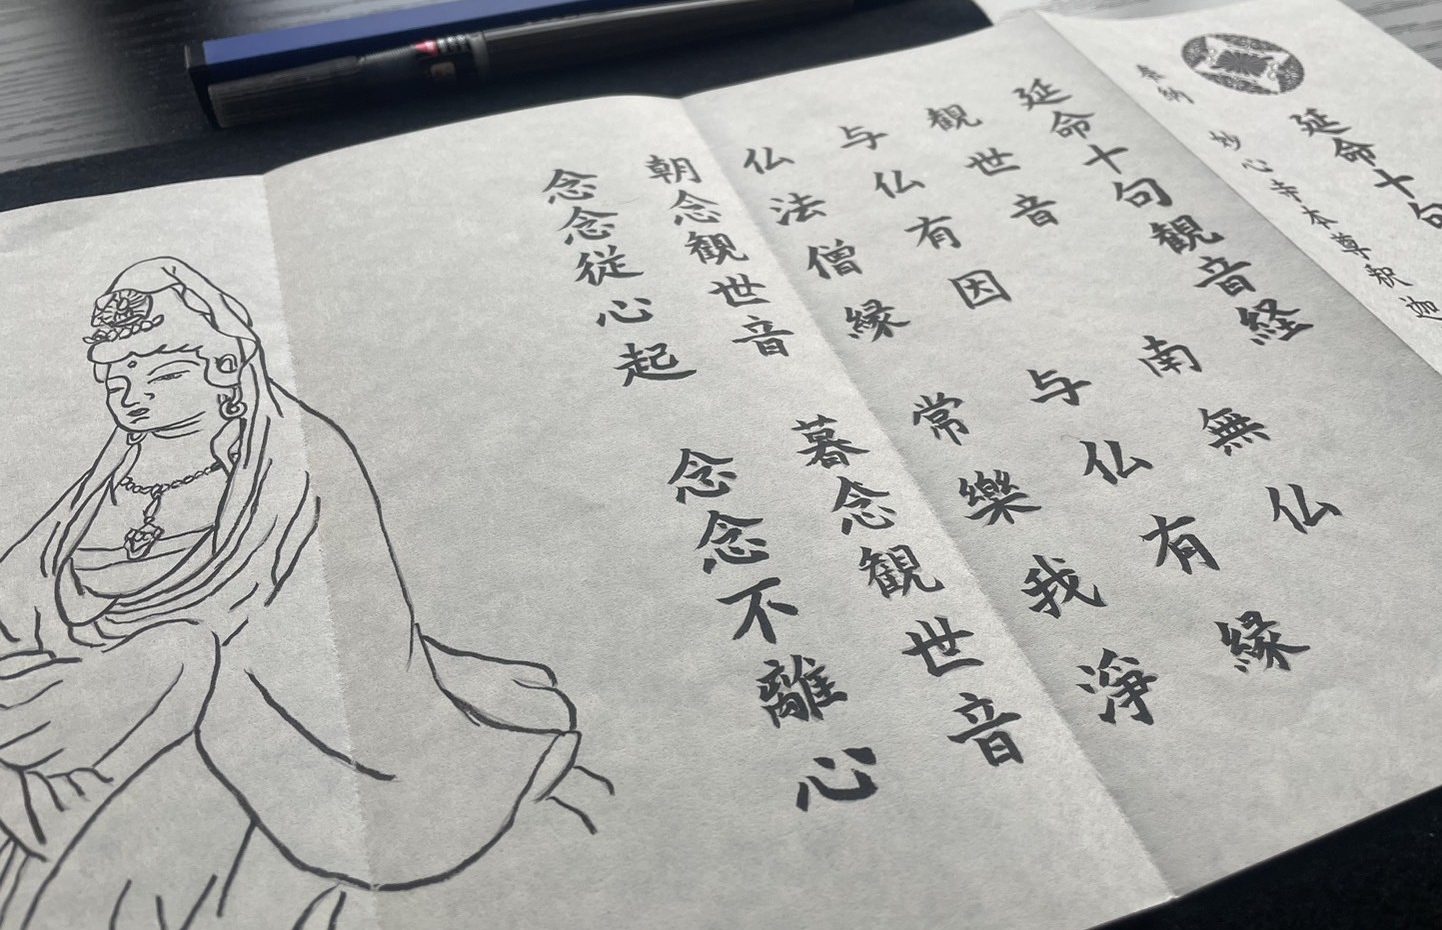 延命十句
奉納 妙心寺本尊釈迦
延命十句観音経
観世音 南無仏
与仏有因 与仏有縁
仏法僧縁 常樂我淨
朝念観世音 暮念観世音
念念従心起 念念不離心